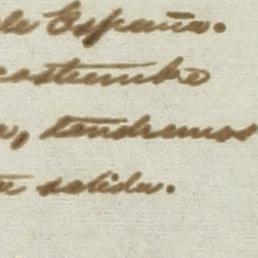 de España.
costumbre
, tendremos
salida.